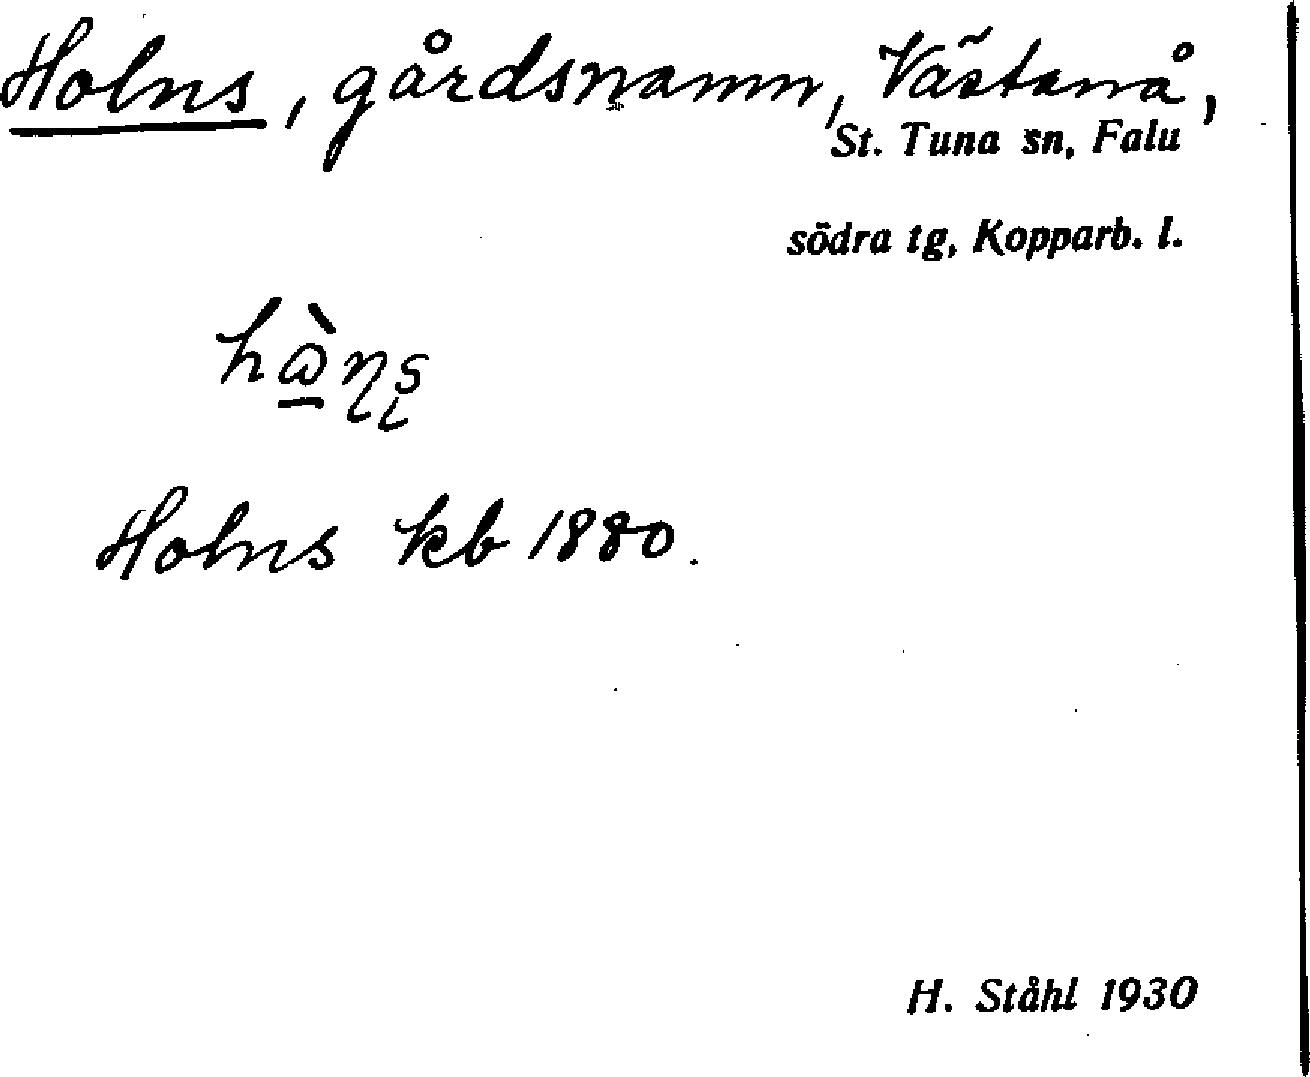 Holns, gårdsnamn, Västanå,
St. Tuna sn, Falu
södra tg, Kopparb. l.
Holns kb 1880.
H. Ståhl 1930